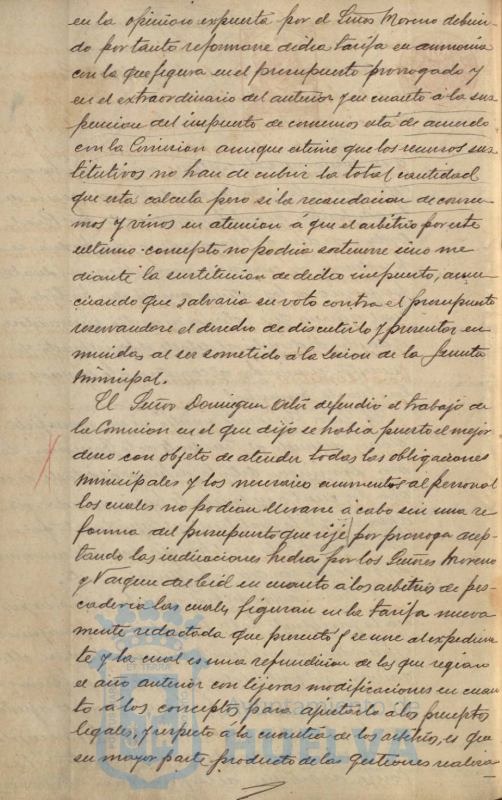 en la opinion expuesta por el Señor Moreno debien-
do por tanto reformarse dicha tarifa en armonia
con la que figura en el presupuesto prorrogado y
en el extraordinario del anterior y en cuanto á la sus
pension del impuesto de consumos está de acuerdo
con la Comision aunque estime que los recursos sus-
titutivos no han de cubrir la total cantidad
que esta calcula pero si la recaudacion de consu-
mos y vinos en atencion á que el arbitrio por este
ultimo concepto no podria sostenerse sino me
diante la sustitucion de dicho impuesto, anun-
ciando que salvaria su voto contra el presupuesto
reservandose el derecho de discutirlo y presentar en
miendas al ser sometido á la Sesion de la Junta
Municipal.
El Señor Dominguez Ortiz defendió el trabajo de
la Comision en el que dijo se habia puesto el mejor
deseo con objeto de atender todas las obligaciones
municipales y los necesarios aumentos al personal
los cuales no podian llevarse á cabo sin una re
forma del presupuesto que rije por prorroga acep-
tando las indicaciones hechas por los Señores Moreno
y Vazquez del Cid en cuanto á los arbitrios de pes-
caderia las cuales figuran en la tarifa nueva-
mente redactada que presentó y se une al expedien-
te y la cual es una refundicion de las que regian
el año anterior con lijeras modificaciones en cuan
to á los conceptos para ajustarlo á los preceptos
legales, y respecto á la cuantia de los arbitrios, es que
en mayor parte producto de las gestiones realiza
Ayuntamiento de
HUELVA